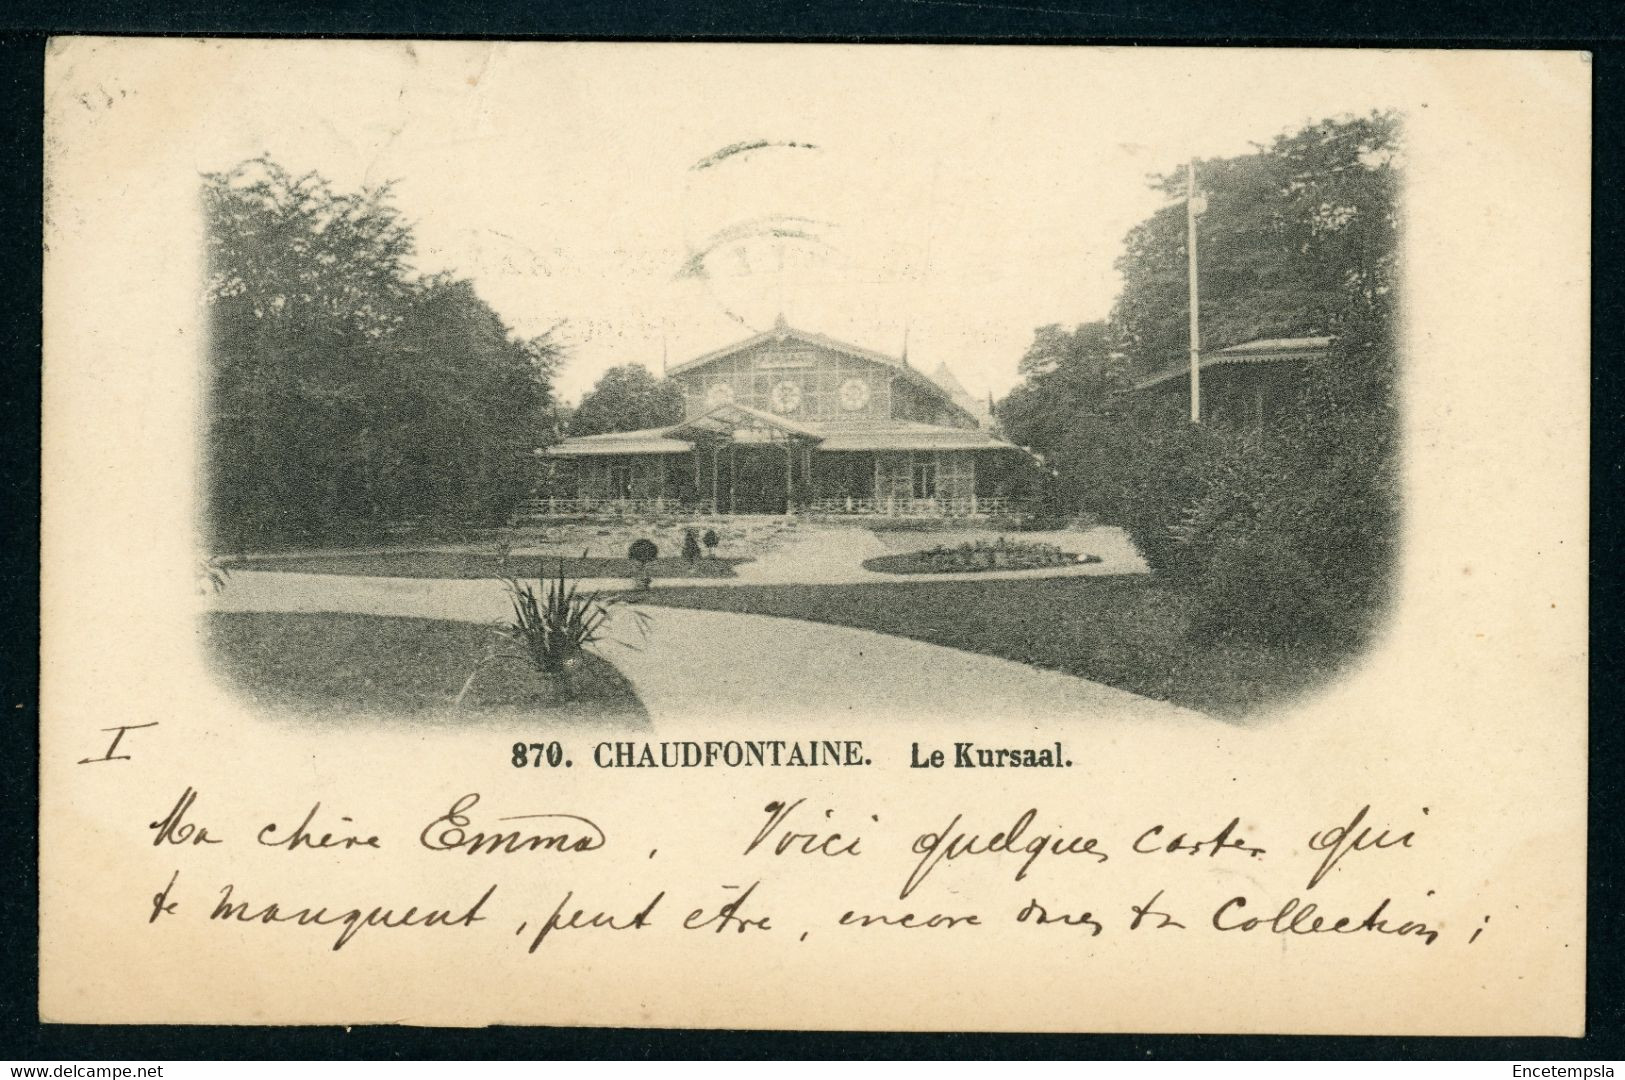 870. CHAUDFONTAINE. Le Kursaal.
I
Ma chère Emma, Voici quelques cartes qui
te manquent, peut être, encore dans ta Collection ;
delcampe.net
Encetempsla